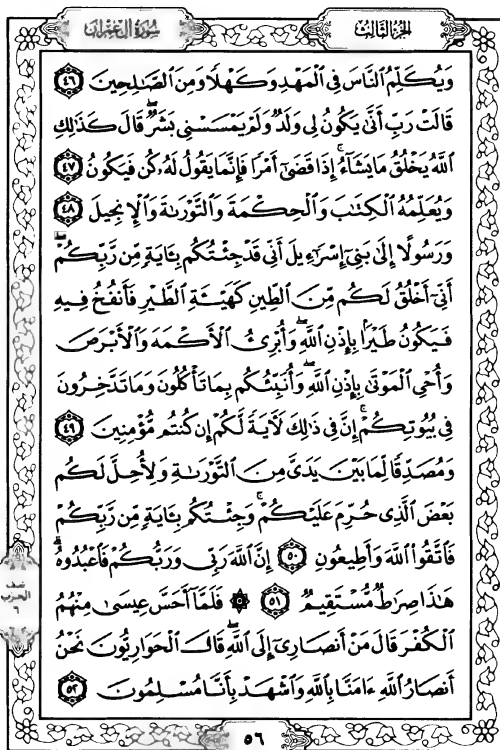 الجزء الثالث
سورة آل عمران
وَيُكَلِّمُ النَّاسَ فِي الْمَهْدِ وَكَهْلًا وَمِنَ الصَّالِحِينَ ٤٦
قَالَتْ رَبِّ أَنَّىٰ يَكُونُ لِي وَلَدٌ وَلَمْ يَمْسَسْنِي بَشَرٌ ۖ قَالَ كَذَٰلِكِ
اللَّهُ يَخْلُقُ مَا يَشَاءُ ۚ إِذَا قَضَىٰ أَمْرًا فَإِنَّمَا يَقُولُ لَهُ كُن فَيَكُونُ ٤٧
وَيُعَلِّمُهُ الْكِتَابَ وَالْحِكْمَةَ وَالتَّوْرَاةَ وَالْإِنجِيلَ ٤٨
وَرَسُولًا إِلَىٰ بَنِي إِسْرَائِيلَ أَنِّي قَدْ جِئْتُكُم بِآيَةٍ مِّن رَّبِّكُمْ ۖ
أَنِّي أَخْلُقُ لَكُم مِّنَ الطِّينِ كَهَيْئَةِ الطَّيْرِ فَأَنفُخُ فِيهِ
فَيَكُونُ طَيْرًا بِإِذْنِ اللَّهِ ۖ وَأُبْرِئُ الْأَكْمَهَ وَالْأَبْرَصَ
وَأُحْيِ الْمَوْتَىٰ بِإِذْنِ اللَّهِ ۖ وَأُنَبِّئُكُم بِمَا تَأْكُلُونَ وَمَا تَدَّخِرُونَ
فِي بُيُوتِكُمْ ۚ إِنَّ فِي ذَٰلِكَ لَآيَةً لَّكُمْ إِن كُنتُم مُّؤْمِنِينَ ٤٩
وَمُصَدِّقًا لِّمَا بَيْنَ يَدَيَّ مِنَ التَّوْرَاةِ وَلِأُحِلَّ لَكُم
بَعْضَ الَّذِي حُرِّمَ عَلَيْكُمْ ۚ وَجِئْتُكُم بِآيَةٍ مِّن رَّبِّكُمْ
فَاتَّقُوا اللَّهَ وَأَطِيعُونِ ٥٠ إِنَّ اللَّهَ رَبِّي وَرَبُّكُمْ فَاعْبُدُوهُ ۗ
هَٰذَا صِرَاطٌ مُّسْتَقِيمٌ ٥١ ۞ فَلَمَّا أَحَسَّ عِيسَىٰ مِنْهُمُ
الْكُفْرَ قَالَ مَنْ أَنصَارِي إِلَى اللَّهِ ۖ قَالَ الْحَوَارِيُّونَ نَحْنُ
أَنصَارُ اللَّهِ آمَنَّا بِاللَّهِ وَاشْهَدْ بِأَنَّا مُسْلِمُونَ ٥٢
نصف
الحزب
٦
٥٦